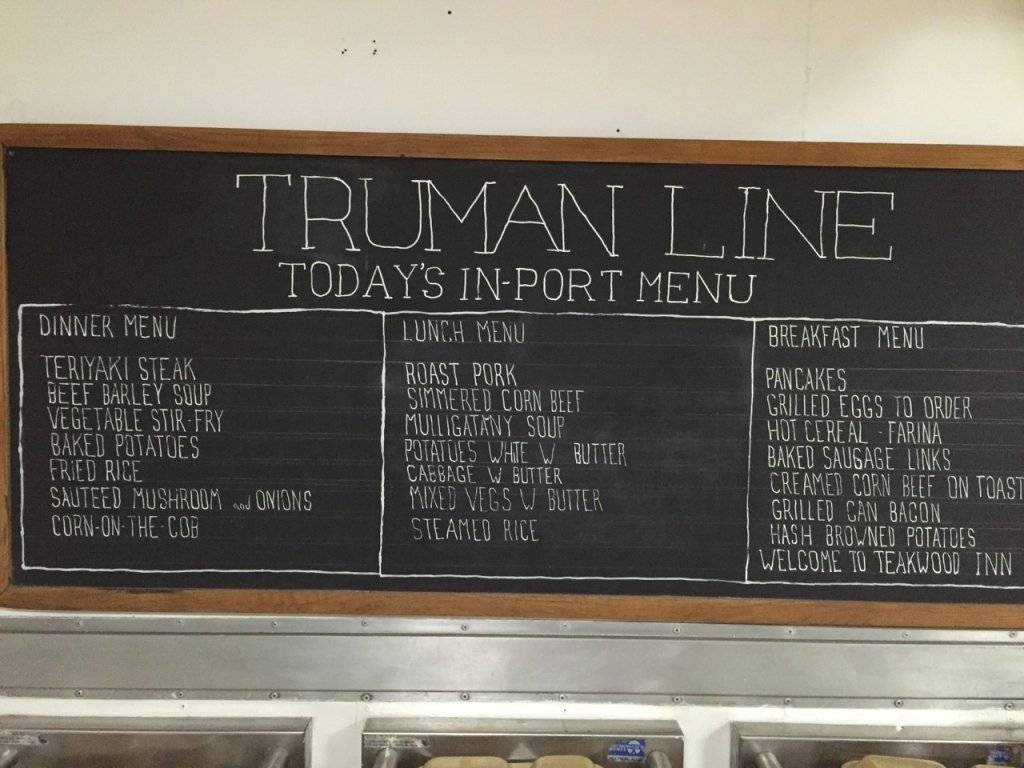 TRUMAN LINE
TODAY'S IN-PORT MENU
DINNER MENU
TERIYAKI STEAK
BEEF BARLEY SOUP
VEGETABLE STIR-FRY
BAKED POTATOES
FRIED RICE
SAUTEED MUSHROOM and ONIONS
CORN-ON-THE-COB
LUNCH MENU
ROAST PORK
SIMMERED CORN BEEF
MULLIGATANY SOUP
POTATOES WHITE W BUTTER
CABBAGE W BUTTER
MIXED VEGS W BUTTER
STEAMED RICE
BREAKFAST MENU
PANCAKES
GRILLED EGGS TO ORDER
HOT CEREAL - FARINA
BAKED SAUSAGE LINKS
CREAMED CORN BEEF ON TOAST
GRILLED CAN BACON
HASH BROWNED POTATOES
WELCOME TO TEAKWOOD INN